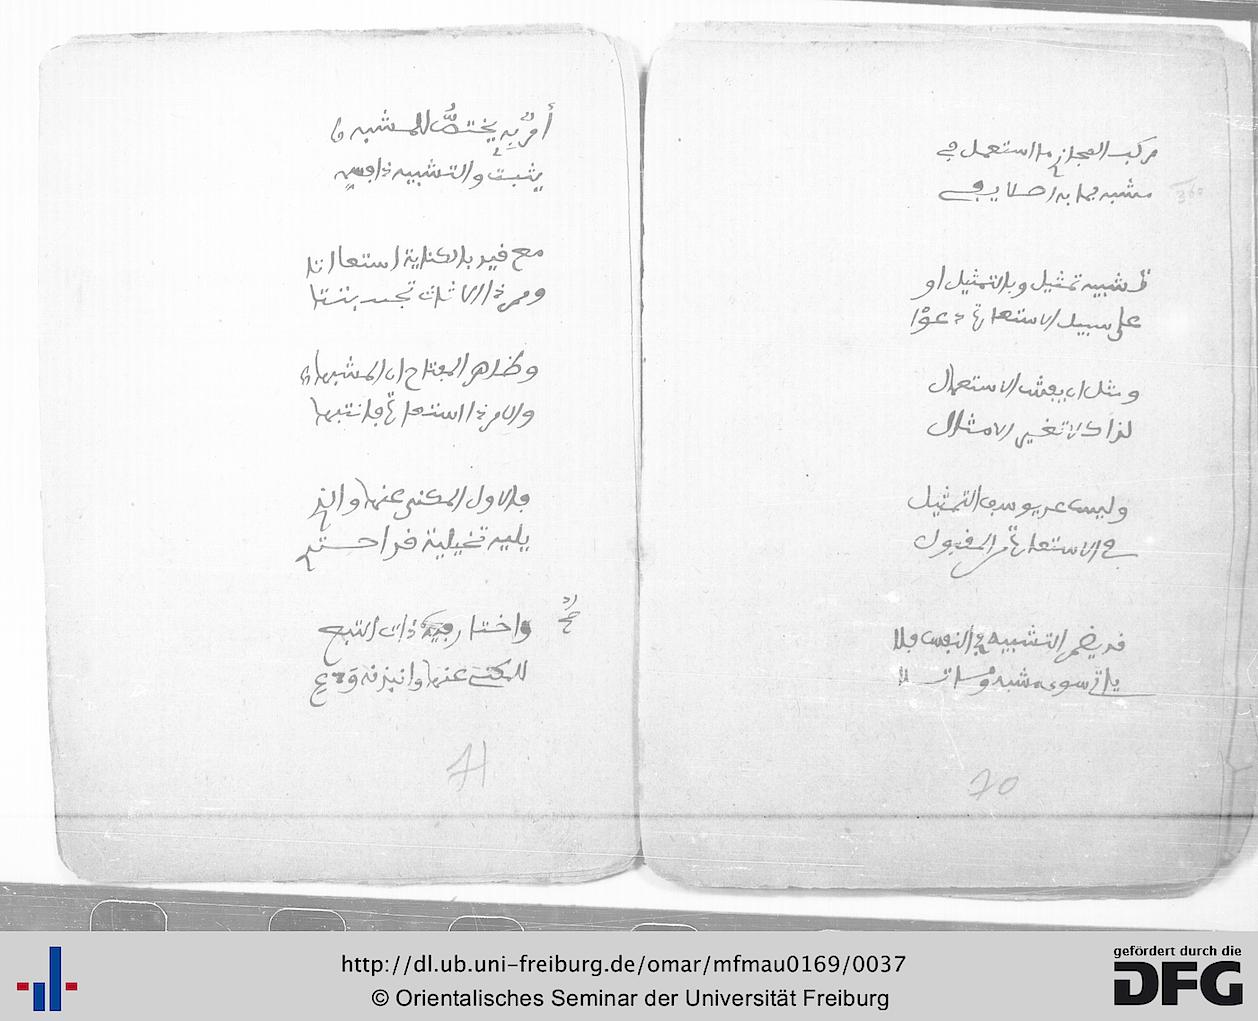 مركب المجاز ما استعمل في
مشبه بما به اصلا يفي
تشبيه تمثيل وبالتمثيل او
على سبيل الاستعارة دعوا
ومثل ان يفش الاستعمال
لذاك لا تغير الامثال
وليس عن يوسف التمثيل
في الاستعارة من المقبول
قد يضمر التشبيه في النفس فلا
ياتي سوى مشبه
70
أمر به يختص للمشبه
يثبت والتشبيه ذا
مع قيد بالكناية
ومر ذا الاثبات
وظاهر المفتاح ان المشبها
والامر ذا استعارة فانتبها
فالاول المكني عنها والذ
يليه تخيلية قد
واختار ذات التبع
للمكني عنها
71
http://dl.ub.uni-freiburg.de/omar/mfmau0169/0037
© Orientalisches Seminar der Universität Freiburg
gefördert durch die
DFG